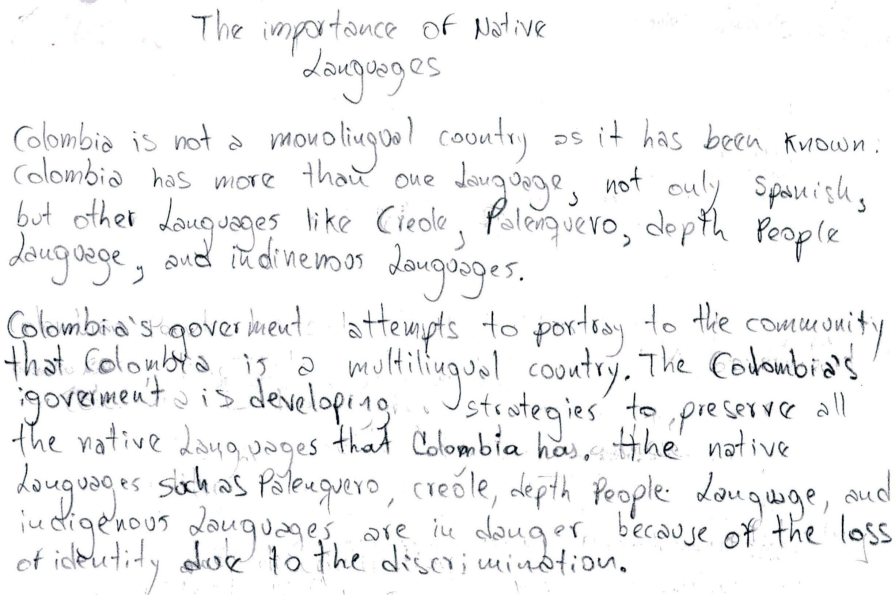 The importance of Native
Languages
Colombia is not a monolingual country as it has been known.
Colombia has more than one language, not only Spanish,
but other Languages like Creole, Palenquero, depth People
Language, and indinenous Languages.
Colombia's goverment attempts to portray to the community
that Colombia is a multilingual country. The Colombia's
goverment is developing strategies to preserve all
the native Languages that Colombia has. the native
Languages such as Palenquero, creole, depth People Language, and
indigenous Languages are in danger because of the loss
of identity due to the discrimination.